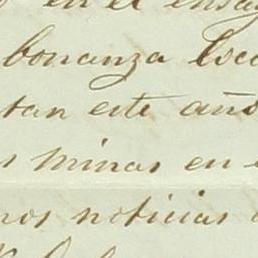 en el ensay
bonanza
tan este año
minas en
nos noticias